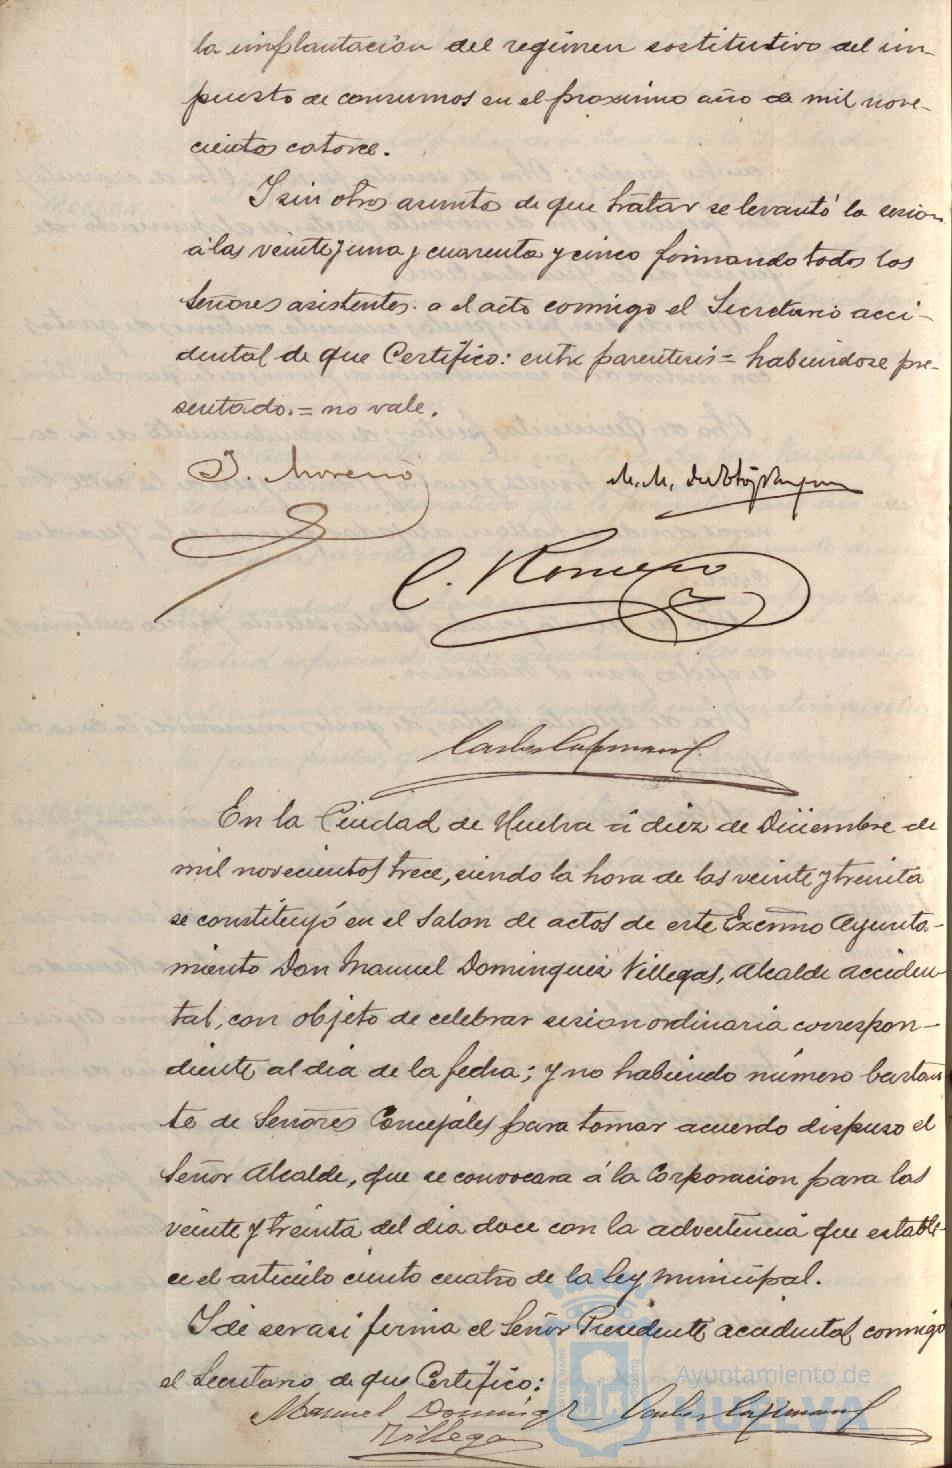 la implantacion del regimen sostitutivo del im-
puesto de consumos en el proximo año de mil nove-
cientos catorce.
Y sin otros asuntos de que tratar se levantó la sesion
á las veinte y una y cuarenta y cinco firmando todos los
Señores asistentes a el acto conmigo el Secretario acci-
dental de que Certifico: entre parentesis = habiendose pre-
sentado. = no vale.
J. Moreno
M. M.
C. Romero
Carlos
En la Ciudad de Huelva á diez de Diciembre de
mil novecientos trece, siendo la hora de las veinte y treinta
se constituyó en el Salon de actos de este Excmo Ayunta-
miento Don Manuel Dominguez Villegas, Alcalde acciden-
tal, con objeto de celebrar sesion ordinaria correspon-
diente al dia de la fecha; y no habiendo número bastan-
te de Señores Concejales para tomar acuerdo dispuso el
Señor Alcalde, que se convocara á la Corporacion para las
veinte y treinta del dia doce con la advertencia que estable-
ce el articulo ciento cuatro de la ley municipal.
Y de ser asi firma el Señor Presidente accidental conmigo
el Secretario de que Certifico:
Manuel Doming Carlos
Villegas
Ayuntamiento de
HUELVA